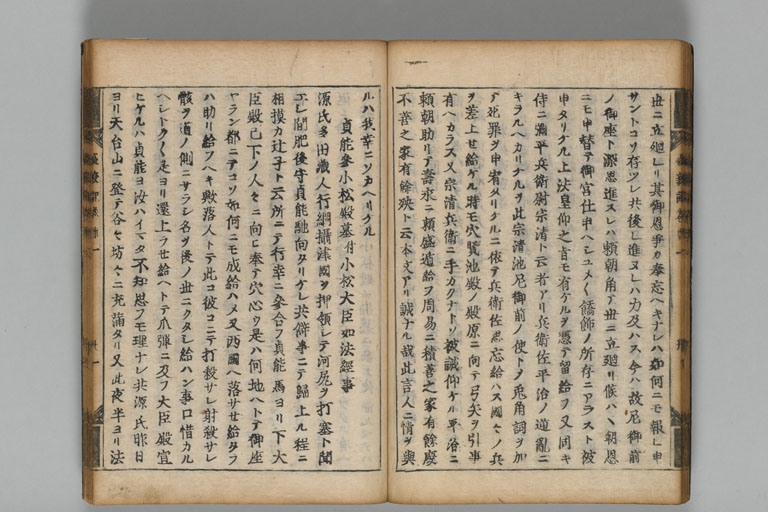 世ニ立廻レリ其御恩爭カ奉忘ヘキナレハ如何ニモ報レ申
サントコソ存ツレ共後レ進ヌレハ力及ハス今ハ故尼御前
ノ御座ト深恩進スレハ頼朝角テ世ニ立廻リ候ハヽ朝恩
ニモ申替テ御宮仕申ヘレユメく餝ノ所存ニアラスト被
申タリケル上法皇仰之旨モ有ケルヲ憑テ留給フ又同キ
侍ニ弥平兵衛尉宗清ト云者アリ兵衛佐平治ノ逆亂ニ
キラルヘカリケルヲ此宗清池尼御前ノ使トメ兎角詞ヲ加
テ死罪ヲ申宥タリケルニ依テ兵衛佐思忘給ハス國々ノ兵
ヲ差上セ給ケル時モ穴賢池殿ノ殿原ニ向テ弓矢ヲ引事
有ヘカラス又宗清兵衛ニ手カクナトソ被誡仰ケル平治ニ
頼朝助リテ壽永ニ頼盛遁給フ周易ニ積善之家有餘慶
不善之家有餘殃ト云本文アリ誠ナル哉此言人ニ情ヲ與
ルハ我幸ニソカヘリケル
貞能參小松殿墓付小松大臣如法經事
源氏多田蔵人行綱攝津國ヲ押領レテ河尻ヲ打塞ト聞
エレ間肥後守貞能馳向タリケレ共僻事ニテ歸上ル程ニ
相摸カ辻子ト云所ニテ行幸ニ參合フ貞能馬ヨリ下大
臣殿已下ノ人々ニ向ヒ奉テ穴心ウ是ハ何地ヘトテ御座
ヤラン都ニテコソ如何ニモ成給ハメ又西國ヘ落サセ給タラ
ハ助リ給フヘキ歟落人トテ此コ彼コニテ打殺サレ射殺サレ
骸ヲ道ノ側ニサラレ名ヲ後ノ世ニクタレ給ハン事口惜カル
ヘレトクく是ヨリ還上ラセ給ヘトテ爪彈ニ及フ大臣殿宜
ヒケルハ貞能ヨ汝ハイマタ不知思フモ理ナレ共源氏昨日
ヨリ天台山ニ登テ谷々坊々ニ充滿タリ又此夜半ヨリ法